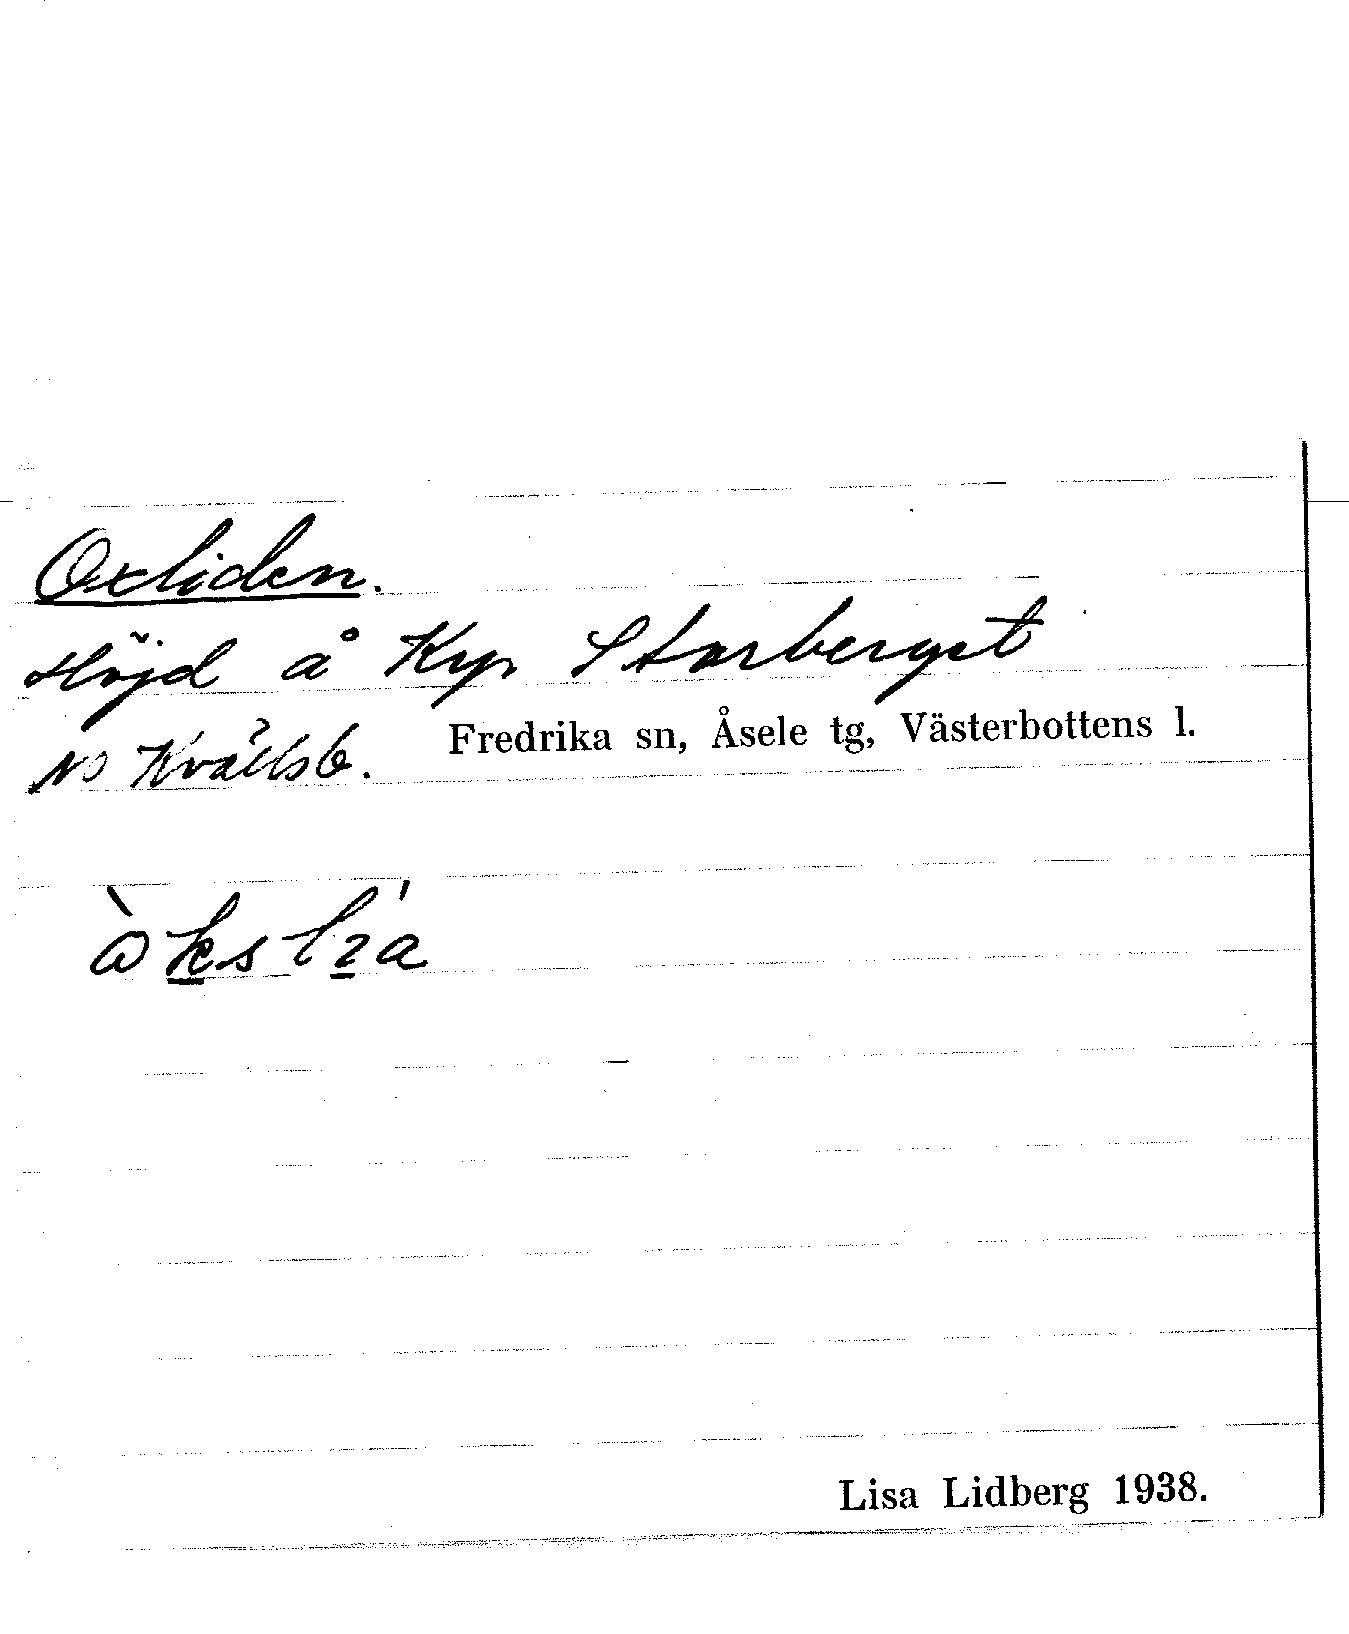 Oxliden.
Höjd å Kr Storberget
NO Kvällsb. Fredrika sn, Åsele tg, Västerbottens l.
Lisa Lidberg 1938.